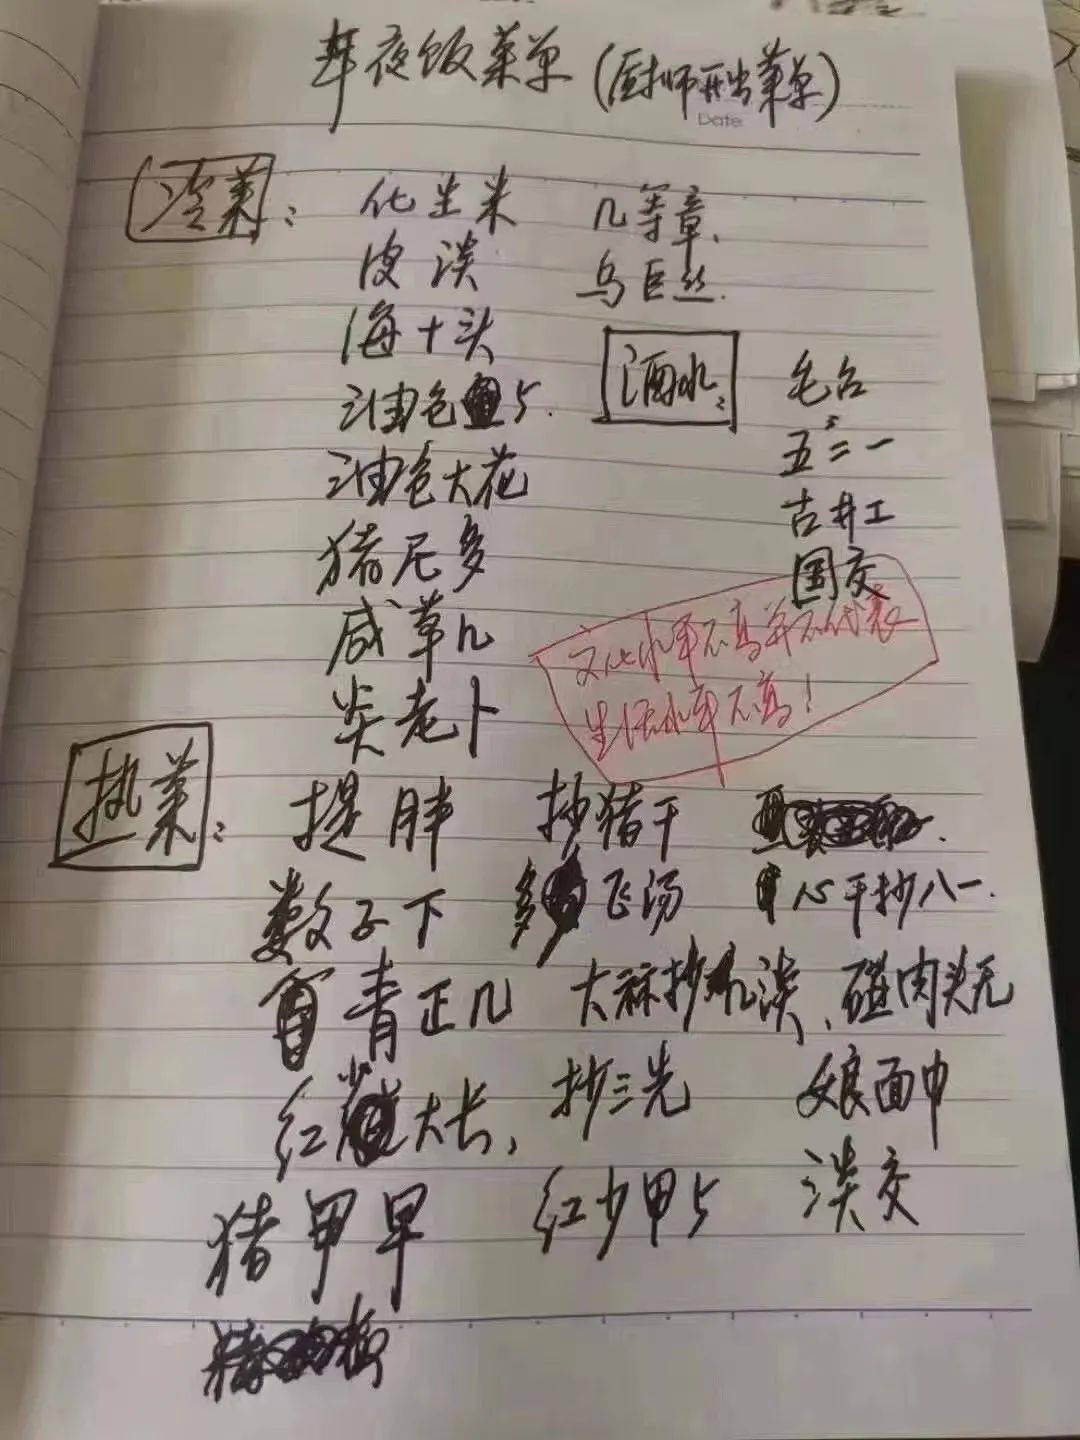 年夜饭菜单(厨师开出菜单)
Date
冷菜: 化生米 几等章、
皮淡 乌巨丝.
海十头
油色鱼5.
油色大花
猪尼多
咸草几
炎老卜
酒水: 毛台
五二一
古井工
国交
文化水平不高并不代表
生活水平不高!
热菜: 提胖 抄猪干
数子下 多飞汤 心干抄八一.
青正几 大麻抄几淡、碰肉头无
红大长, 抄三先 娘面巾
猪甲早 红少甲5 淡交